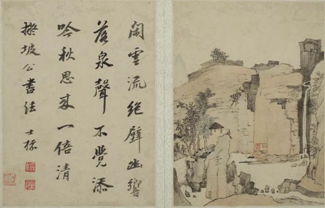 閒雲流絕壁幽響
落泉聲不覺添
吟秋思來一倍清
擬坡公書法 士標